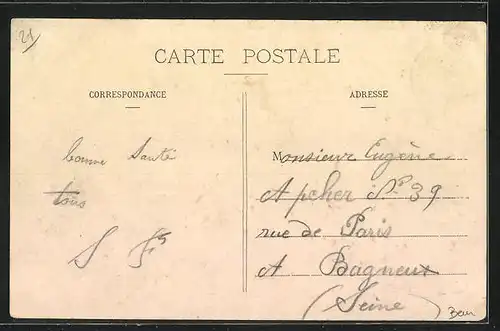 21
CARTE POSTALE
CORRESPONDANCE
ADRESSE
bonne Santé
tous
Monsieur Eugène
Apcher N° 39
rue de Paris
A Bagneux
(Seine)